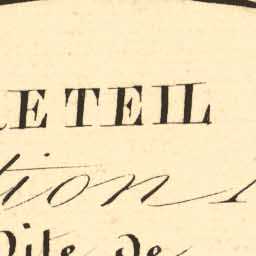 RETEIL
tion
Dite de